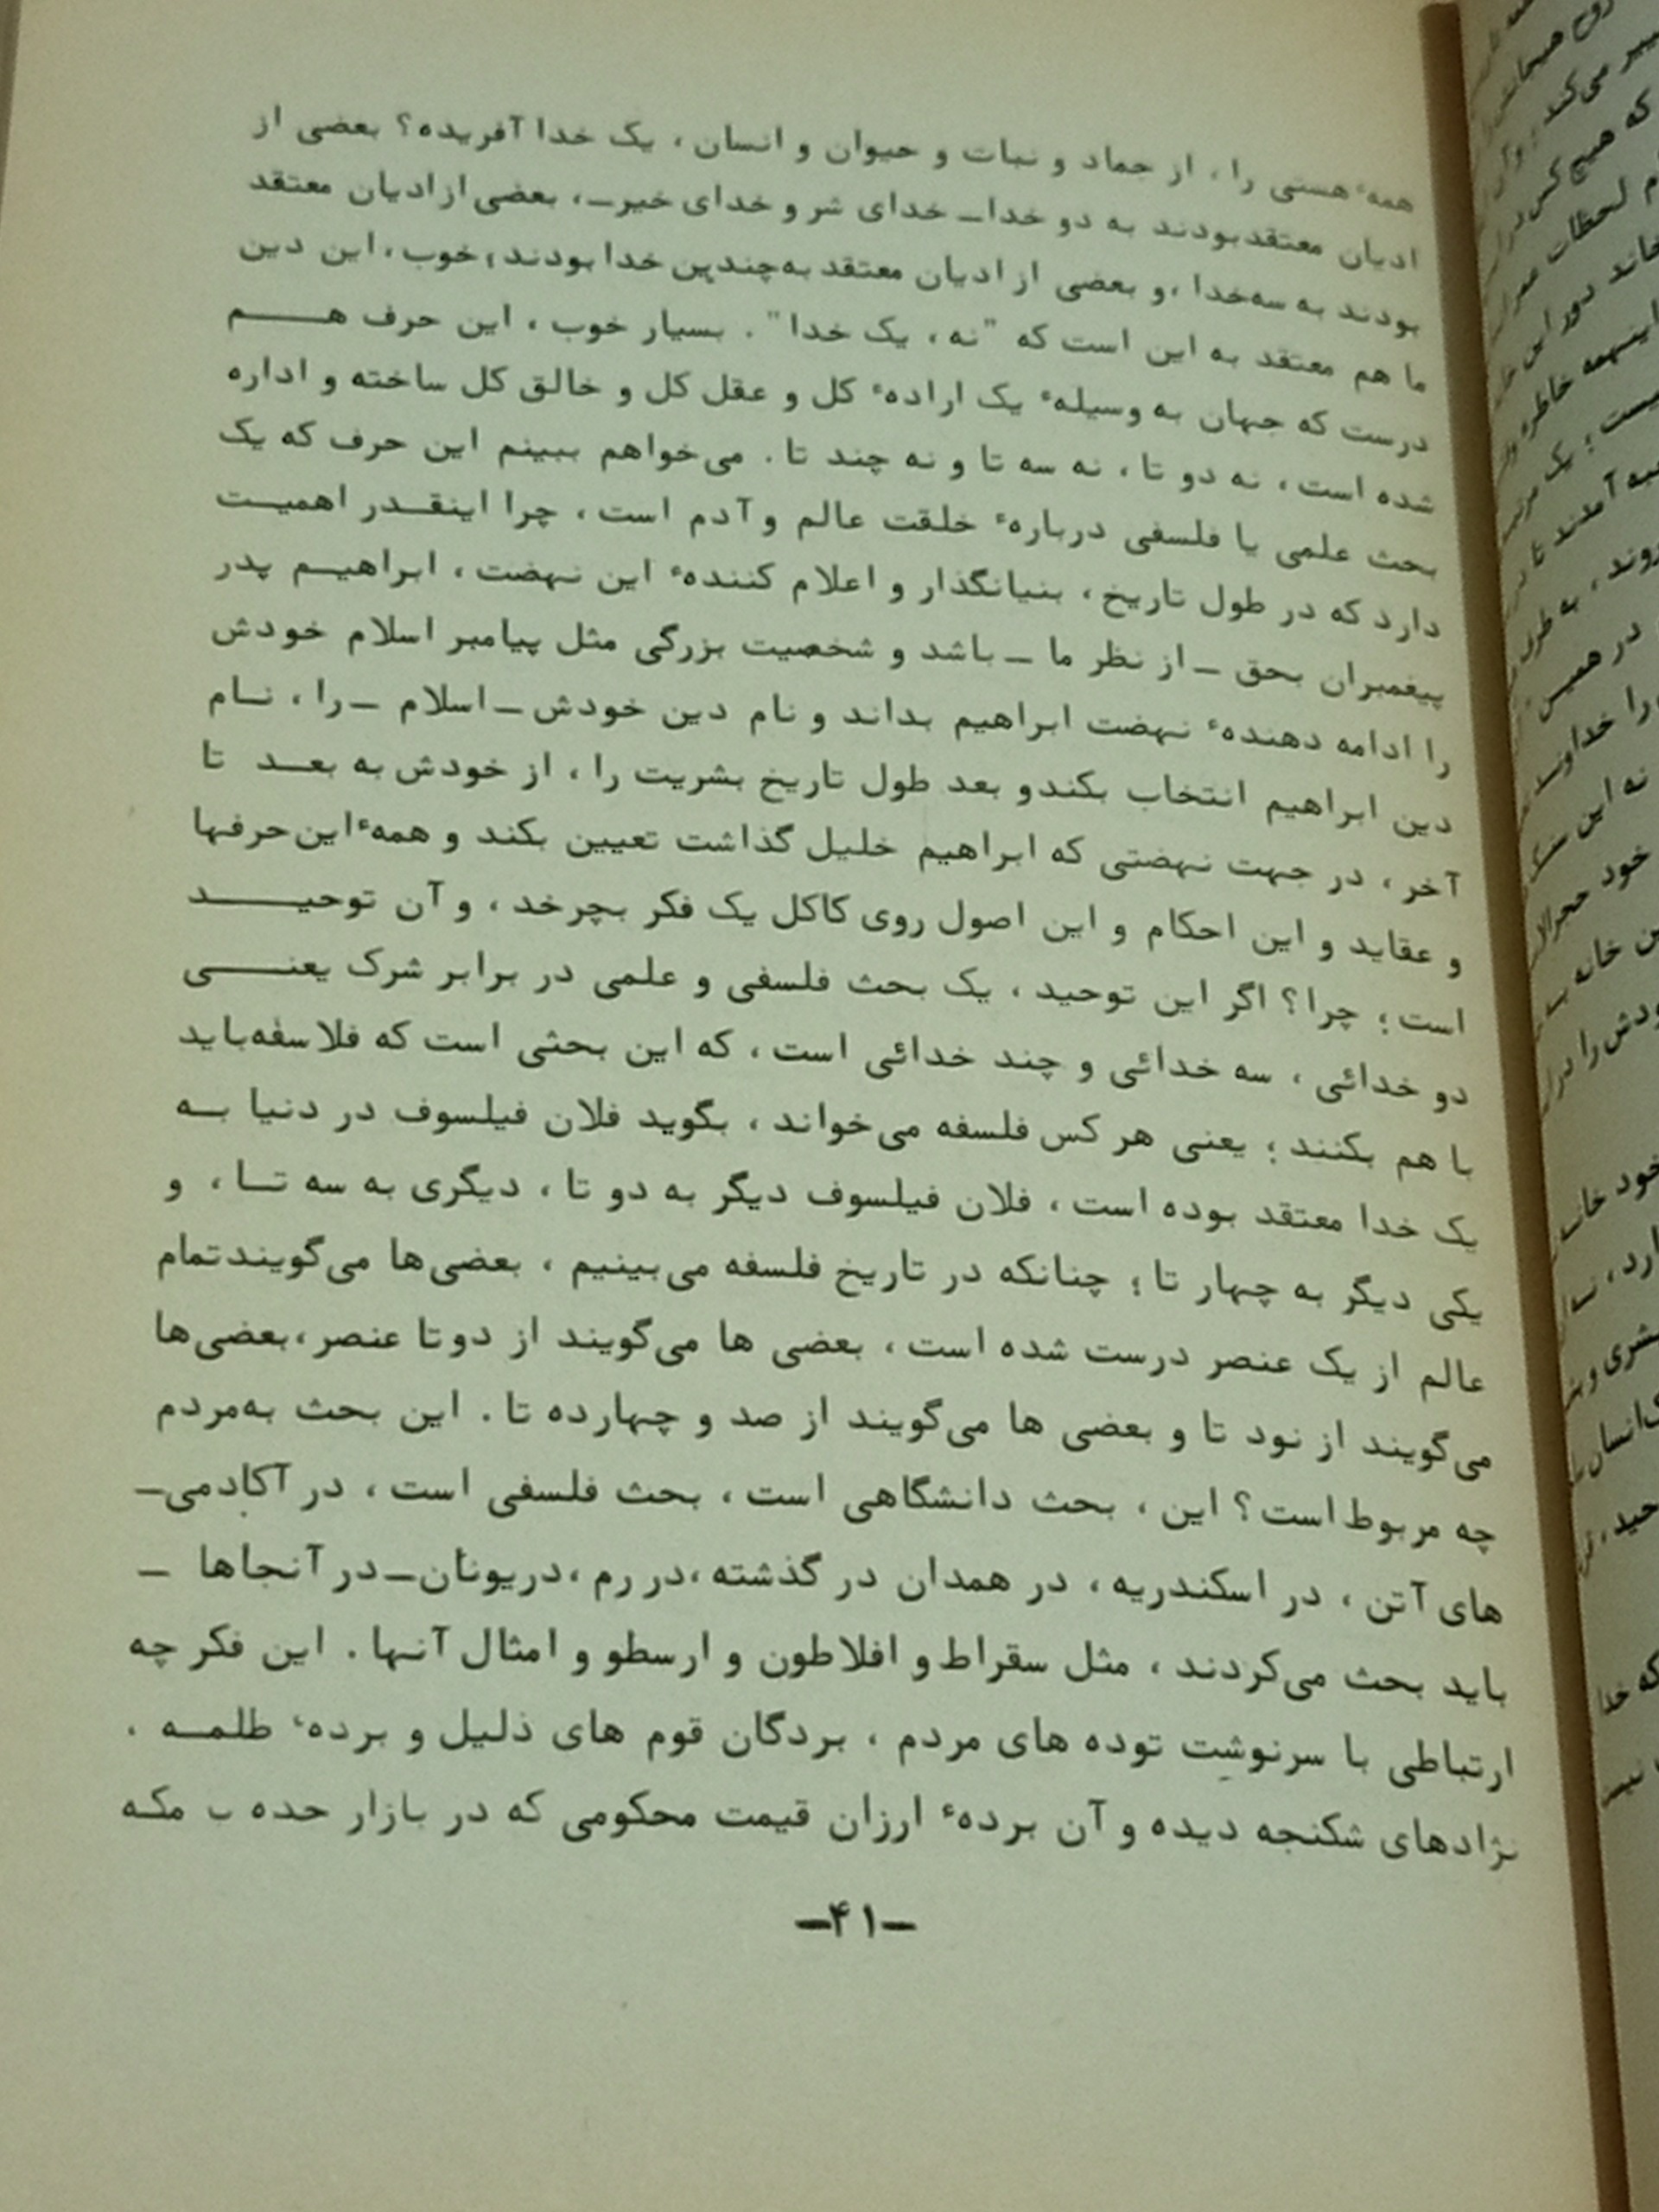 همهٔ هستی را، از جماد و نبات و حیوان و انسان، یک خدا آفریده؟ بعضی از
ادیان معتقد بودند به دو خدا ـ خدای شر و خدای خیر ـ، بعضی از ادیان معتقد
بودند به سه‌خدا، و بعضی از ادیان معتقد به‌چندین خدا بودند؛ خوب، این دین
ما هم معتقد به این است که "نه، یک خدا". بسیار خوب، این حرف هــــم
درست که جهان به وسیلهٔ یک ارادهٔ کل و عقل کل و خالق کل ساخته و اداره
شده است، نه دو تا، نه سه تا و نه چند تا. می‌خواهم ببینم این حرف که یک
بحث علمی یا فلسفی دربارهٔ خلقت عالم و آدم است، چرا اینقــدر اهمیــت
دارد که در طول تاریخ، بنیانگذار و اعلام کنندهٔ این نهضت، ابراهیــم پدر
پیغمبران بحق ـ از نظر ما ـ باشد و شخصیت بزرگی مثل پیامبر اسلام خودش
را ادامه دهندهٔ نهضت ابراهیم بداند و نام دین خودش ـ اسلام ـ را، نــام
دین ابراهیم انتخاب بکند و بعد طول تاریخ بشریت را، از خودش به بعــد تا
آخر، در جهت نهضتی که ابراهیم خلیل گذاشت تعیین بکند و همهٔ این حرفها
و عقاید و این احکام و این اصول روی کاکل یک فکر بچرخد، و آن توحیــــد
است؛ چرا؟ اگر این توحید، یک بحث فلسفی و علمی در برابر شرک یعنــــی
دو خدائی، سه خدائی و چند خدائی است، که این بحثی است که فلاسفه‌باید
با هم بکنند؛ یعنی هر کس فلسفه می‌خواند، بگوید فلان فیلسوف در دنیا بــه
یک خدا معتقد بوده است، فلان فیلسوف دیگر به دو تا، دیگری به سه تــا، و
یکی دیگر به چهار تا؛ چنانکه در تاریخ فلسفه می‌بینیم، بعضی‌ها می‌گویند تمام
عالم از یک عنصر درست شده است، بعضی ها می‌گویند از دو تا عنصر، بعضی‌ها
می‌گویند از نود تا و بعضی ها می‌گویند از صد و چهارده تا. این بحث به‌مردم
چه مربوط است؟ این، بحث دانشگاهی است، بحث فلسفی است، در آکادمی‌ـ
های آتن، در اسکندریه، در همدان در گذشته، در رم، در یونان ـ در آنجاها ـ
باید بحث می‌کردند، مثل سقراط و افلاطون و ارسطو و امثال آنها. این فکر چه
ارتباطی با سرنوشت توده های مردم، بردگان قوم های ذلیل و بردهٔ ظلمــه.
نژادهای شکنجه دیده و آن بردهٔ ارزان قیمت محکومی که در بازار مکه
ـ۴۱ـ